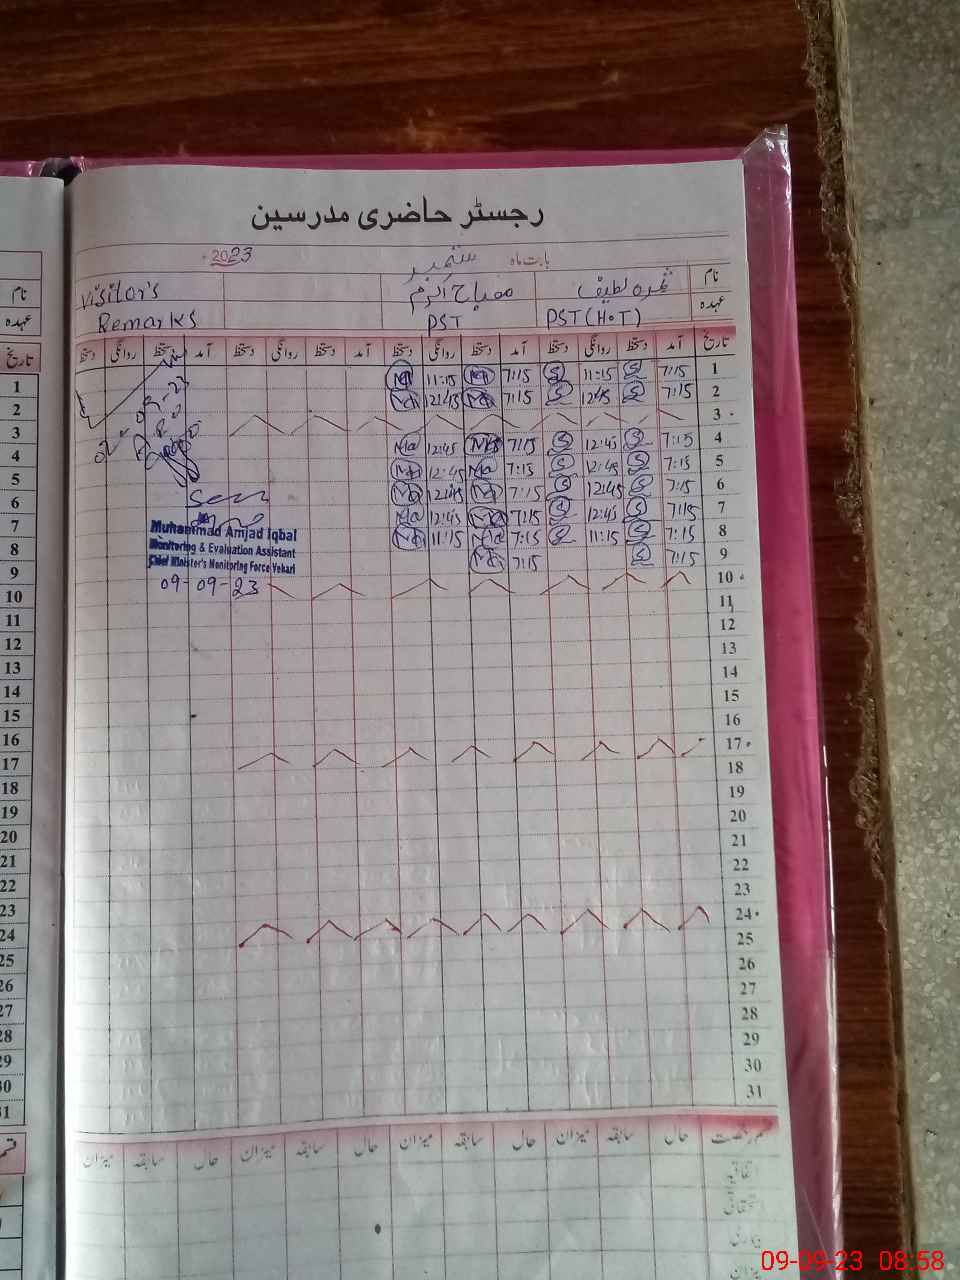 رجسٹر حاضری مدرسین
بابت ماہ ستمبر 2023
نام ثمرہ لطیف مصباح اکرم Visitor's
عہدہ PST (H.T) PST Remarks
تاریخ آمد دستخط روانگی دستخط آمد دستخط روانگی دستخط آمد دستخط روانگی دستخط آمد دستخط روانگی دستخط
1 7:15 S 11:15 S 7:15 Ma 11:15 Ma
2 7:15 S 12:45 S 7:15 Ma 12:45 Ma
3
4 7:15 S 12:45 S 7:15 Ma 12:45 Ma
5 7:15 S 12:45 S 7:15 Ma 12:45 Ma
6 7:15 S 12:45 S 7:15 Ma 12:45 Ma
7 7:15 S 12:45 S 7:15 Ma 12:45 Ma
8 7:15 S 11:15 S 7:15 Ma 11:15 Ma
9 7:15 S 7:15 Ma
10
11
12
13
14
15
16
17
18
19
20
21
22
23
24
25
26
27
28
29
30
31
Seen
Muhammad Amjad Iqbal
Monitoring & Evaluation Assistant
Chief Minister's Monitoring Force Vehari
09-09-23
قسم رخصت حال سابقہ میزان حال سابقہ میزان حال سابقہ میزان حال سابقہ میزان
اتفاقیہ
استحقاقی
بیماری
میزان
نام
عہدہ
تاریخ
1
2
3
4
5
6
7
8
9
10
11
12
13
14
15
16
17
18
19
20
21
22
23
24
25
26
27
28
29
30
31
09-09-23 08:58